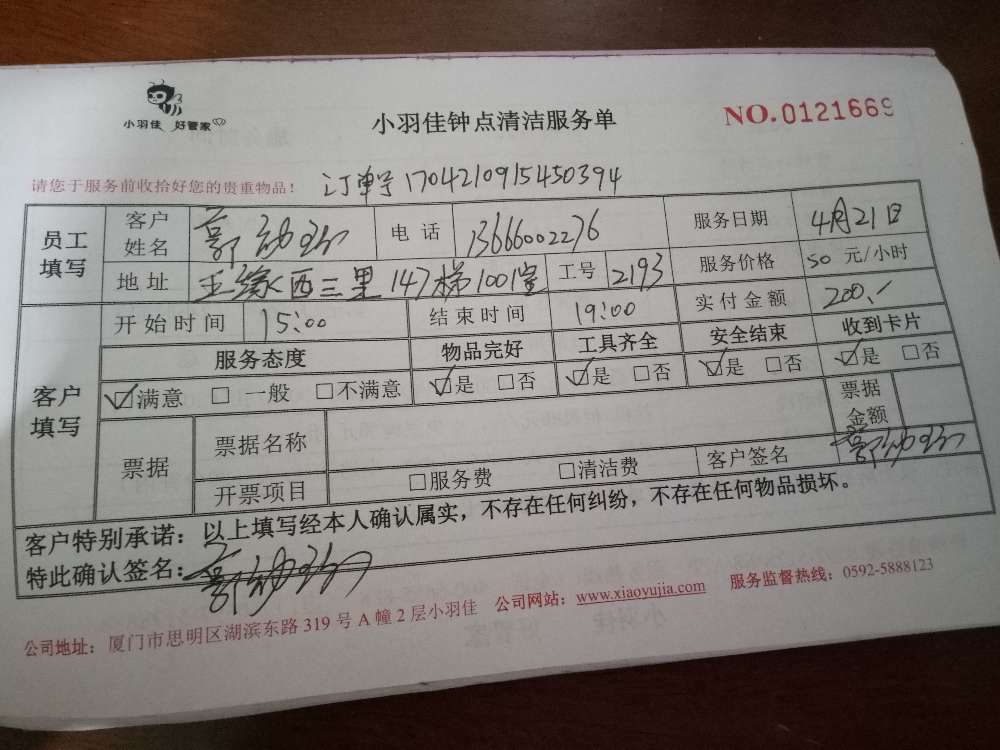 小羽佳 好管家
小羽佳钟点清洁服务单
NO.0121669
请您于服务前收拾好您的贵重物品！ 订单号 1704210915450394
员工填写 客户姓名 郭 电话 13666002276 服务日期 4月21日
地址 西三里 147梯 1001室 工号 2193 服务价格 50 元/小时
客户填写 开始时间 15:00 结束时间 19:00 实付金额 200.-
服务态度 物品完好 工具齐全 安全结束 收到卡片
☑满意 □一般 □不满意 ☑是 □否 ☑是 □否 ☑是 □否 ☑是 □否
票据 票据名称 票据金额
开票项目 □服务费 □清洁费 客户签名 郭
客户特别承诺：以上填写经本人确认属实，不存在任何纠纷，不存在任何物品损坏。
特此确认签名：郭
公司地址：厦门市思明区湖滨东路 319 号 A 幢 2 层小羽佳 公司网站：www.xiaoyujia.com 服务监督热线：0592-5888123